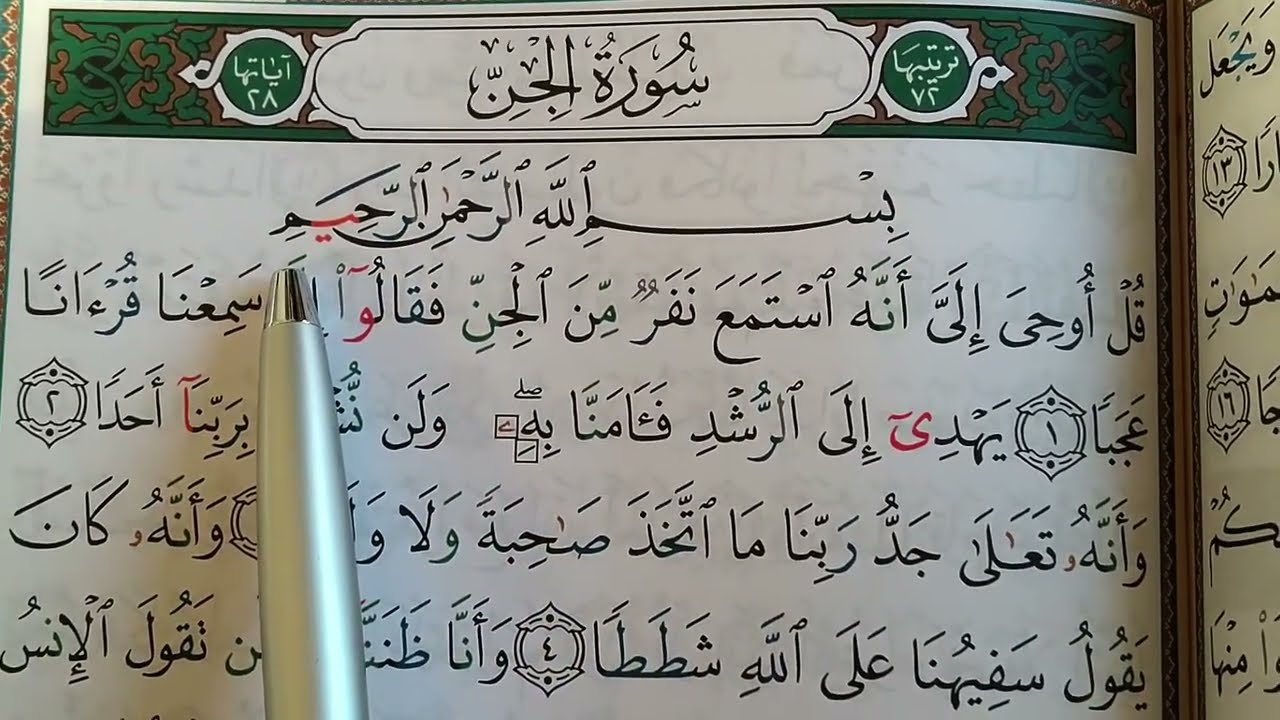 ترتيبها ٧٢
سُورَةُ الجِنِّ
آيَاتها ٢٨
بِسْمِ ٱللَّهِ ٱلرَّحْمَٰنِ ٱلرَّحِيمِ
قُلْ أُوحِىَ إِلَىَّ أَنَّهُ ٱسْتَمَعَ نَفَرٌ مِّنَ ٱلْجِنِّ فَقَالُوٓا۟ سَمِعْنَا قُرْءَانًا
عَجَبًا ١ يَهْدِىٓ إِلَى ٱلرُّشْدِ فَـَٔامَنَّا بِهِۦۖ وَلَن بِرَبِّنَآ أَحَدًا ٢
وَأَنَّهُۥ تَعَٰلَىٰ جَدُّ رَبِّنَا مَا ٱتَّخَذَ صَٰحِبَةً وَلَا وَأَنَّهُۥ كَانَ
يَقُولُ سَفِيهُنَا عَلَى ٱللَّهِ شَطَطًا ٤ وَأَنَّا تَقُولَ ٱلْإِنسُ
وَيَجْعَل
١٣
١٦
مِنْهَا